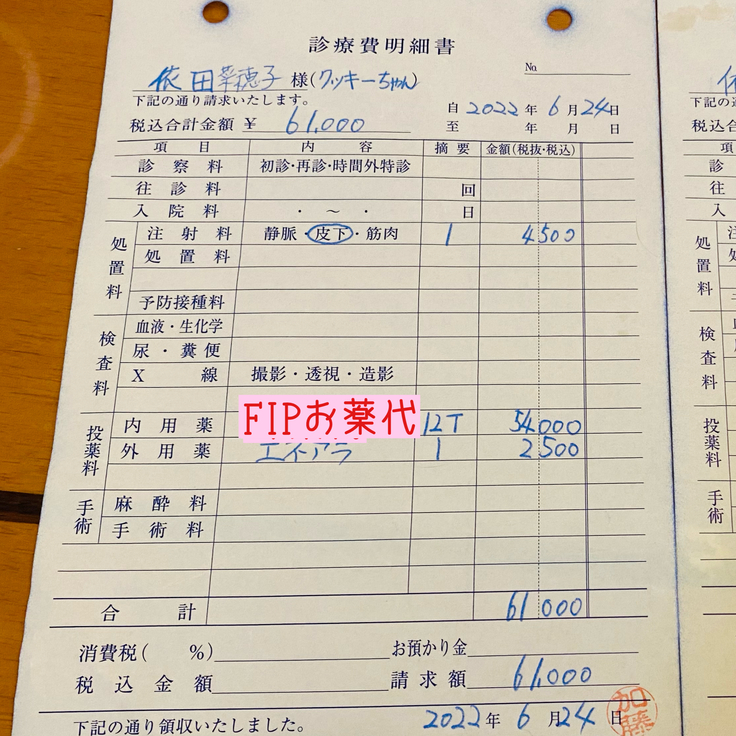 診療費明細書
No.
依田菜穂子 様(クッキーちゃん)
下記の通り請求いたします。
自 2022 年 6 月 24 日
税込合計金額 ¥ 61,000
至 年 月 日
項目 内容 摘要 金額(税抜・税込)
診察料 初診・再診・時間外特診
往診料 回
入院料 ・ ～ ・ 日
処置料
注射料 静脈・皮下・筋肉 1 4500
処置料
予防接種料
検査料
血液・生化学
尿・糞便
X線 撮影・透視・造影
FIPお薬代
投薬料
内用薬 12T 54000
外用薬 1 2500
手術
麻酔料
手術料
合計 61000
消費税( %) お預かり金
税込金額 請求額 61,000
下記の通り領収いたしました。 2022 年 6 月 24 日
加藤
項
診
往
入
処置料
検査料
投薬料
手術
合
消
税
下